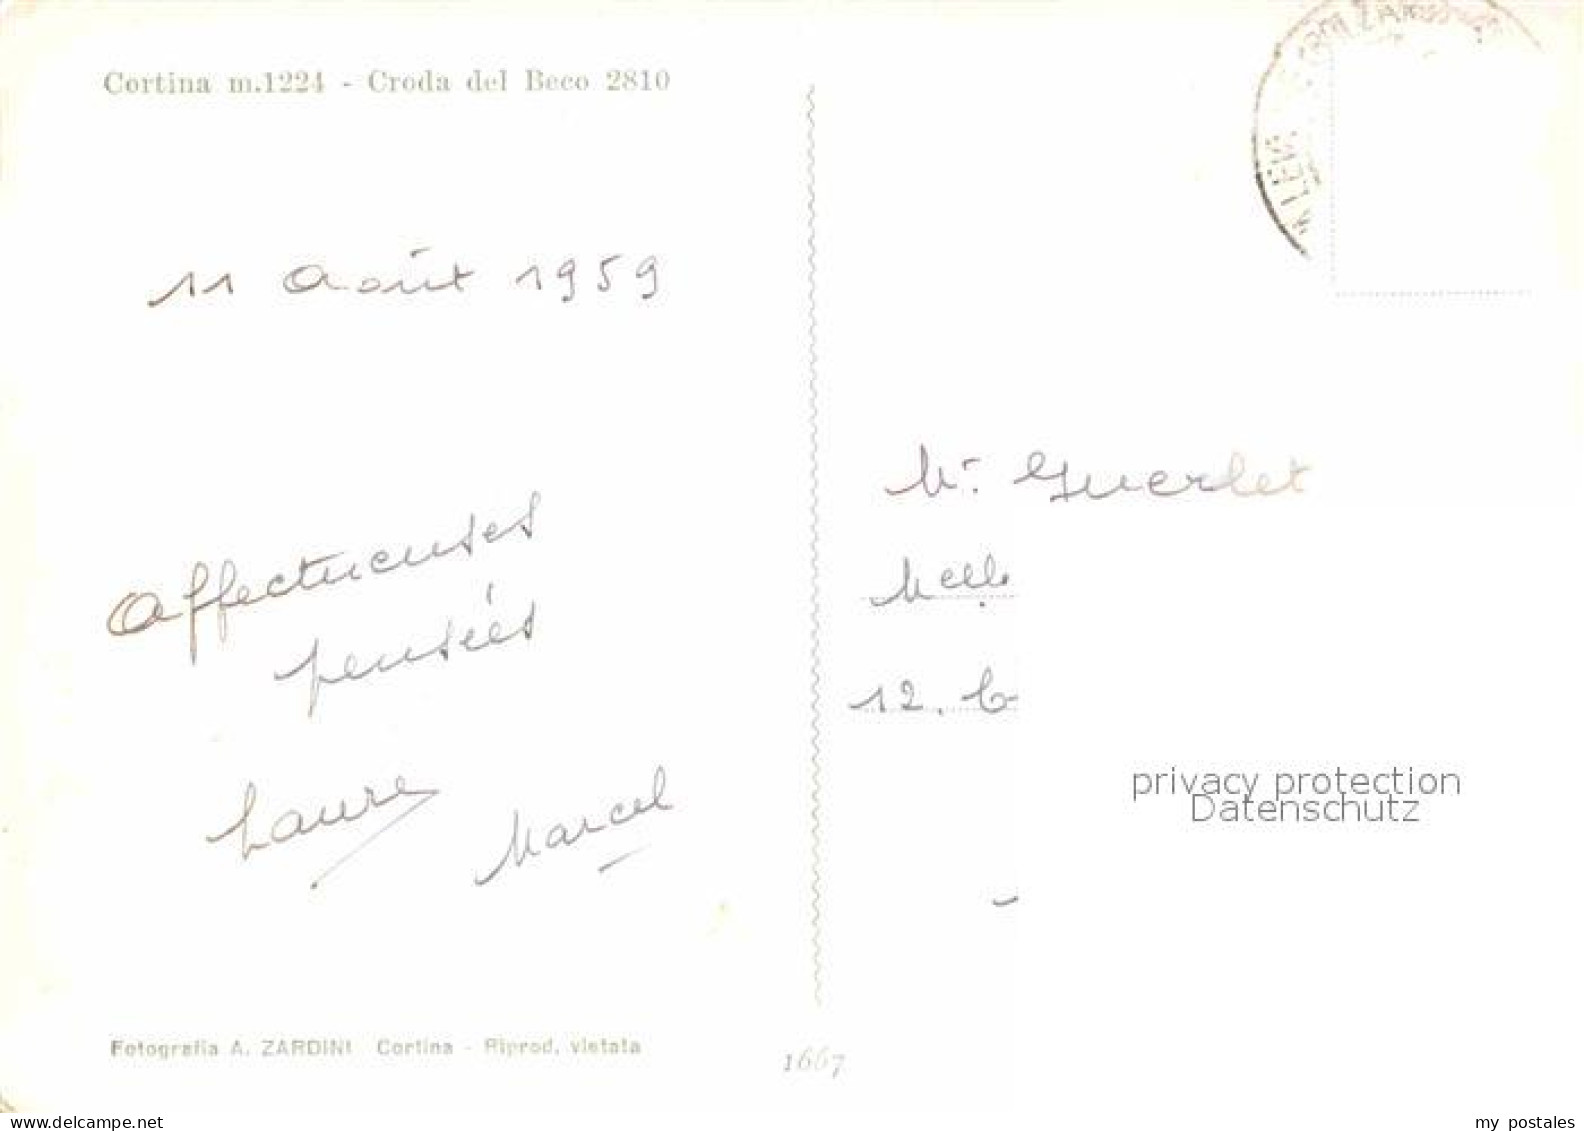 Cortina m.1224 - Croda del Beco 2810
11 Août 1959
Affectueuses
pensées
Laure
Marcel
Fotografia A. ZARDINI Cortina - Riprod. vietata
1667
Mr. Guerlet
Melle
12.
privacy protection
Datenschutz
Delcampe.net
my postales